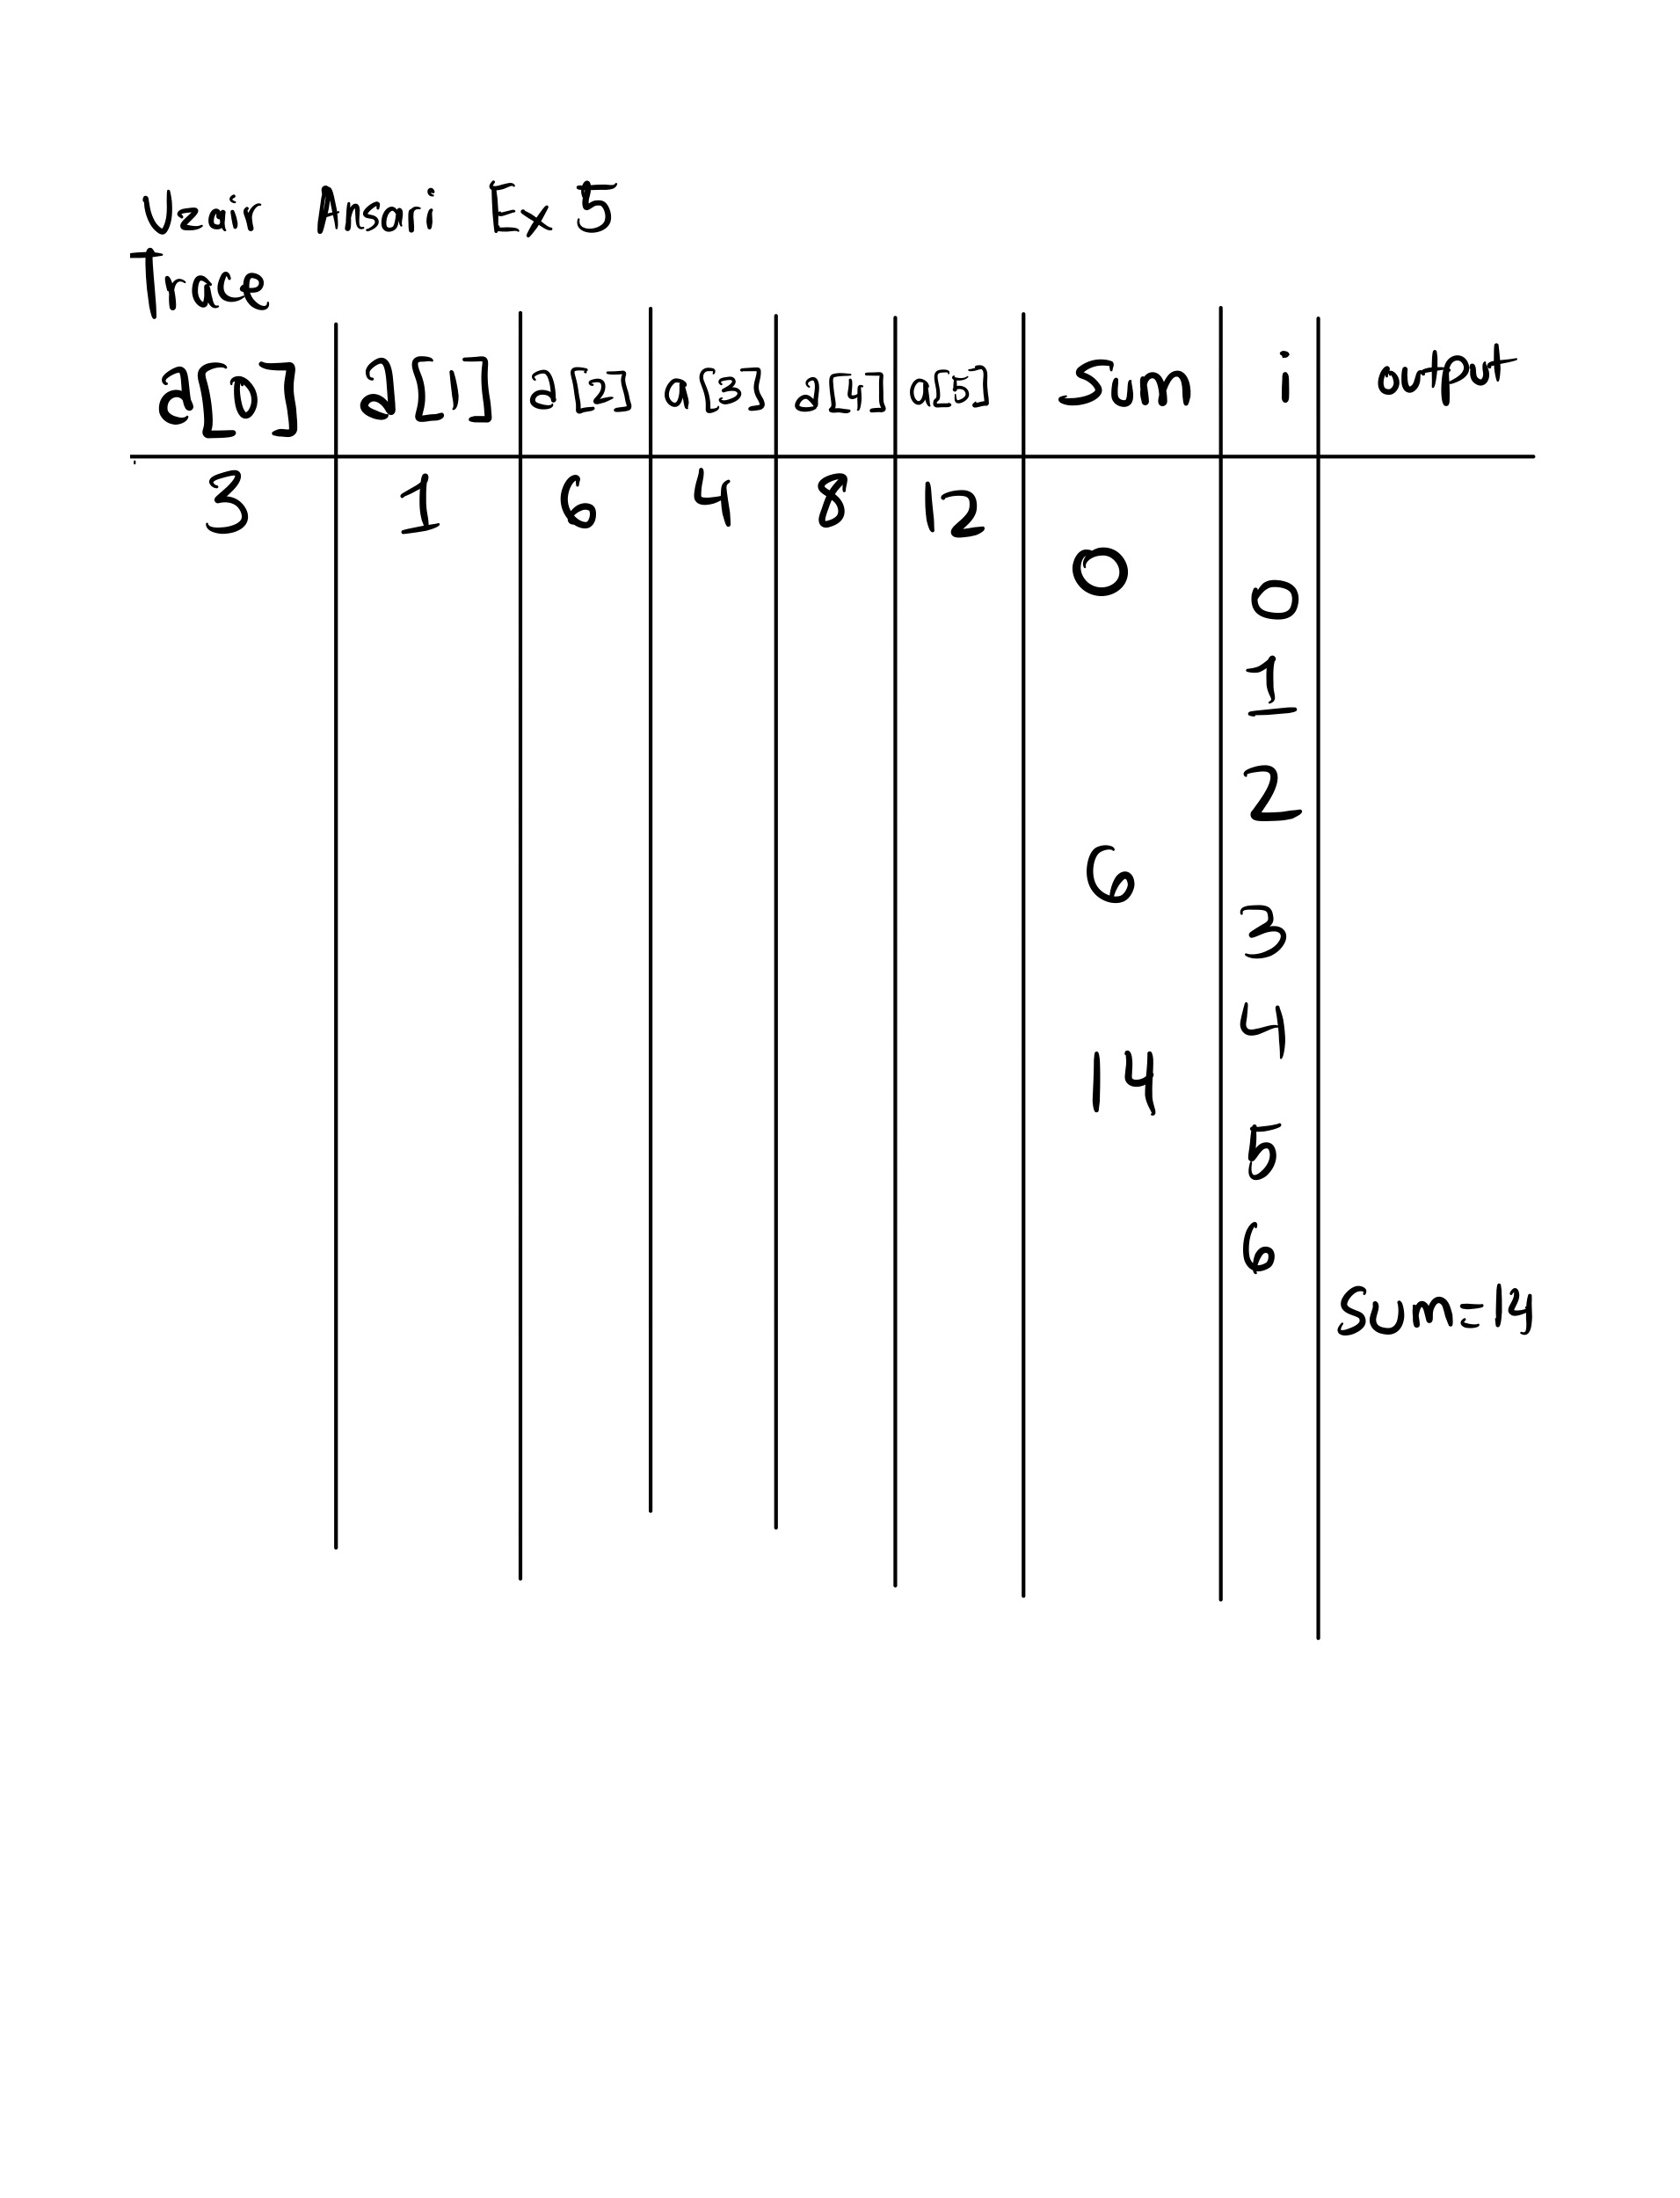 Uzair Ansari Ex 5
Trace
a[0] a[1] a[2] a[3] a[4] a[5] Sum i output
3 1 6 4 8 12
0
0
1
2
6
3
4
14
5
6
Sum=14